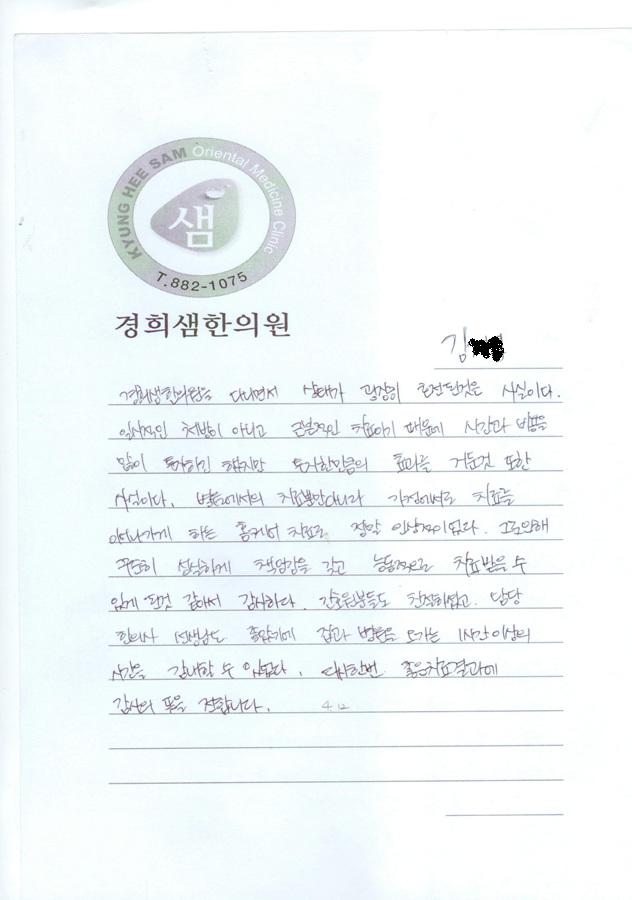 KYUNG HEE SAM Oriental Medicine Clinic
샘
T.882-1075
경희샘한의원
김
경희샘한의원을 다니면서 상태가 굉장히 호전된것은 사실이다.
일시적인 처방이 아니고 근본적인 치료이기 때문에 시간과 비용을
많이 투자하긴 했지만 투자한만큼의 효과를 거둔건 또한
사실이다. 병원에서의 치료뿐만아니라 가정에서도 치료를
이어나가게 하는 홈케어 치료도 정말 인상적이었다. 그로인해
꾸준히 성실하게 책임감을 갖고 능동적으로 치료받을 수
있게 된것 같아서 감사하다. 간호원분들도 친절하셨고. 담당
한의사 선생님도 좋았기에 집과 병원을 오가는 1시간이상의
시간을 감내할 수 있었다. 다시한번 좋은치료결과에
감사의 뜻을 전합니다. 4.12